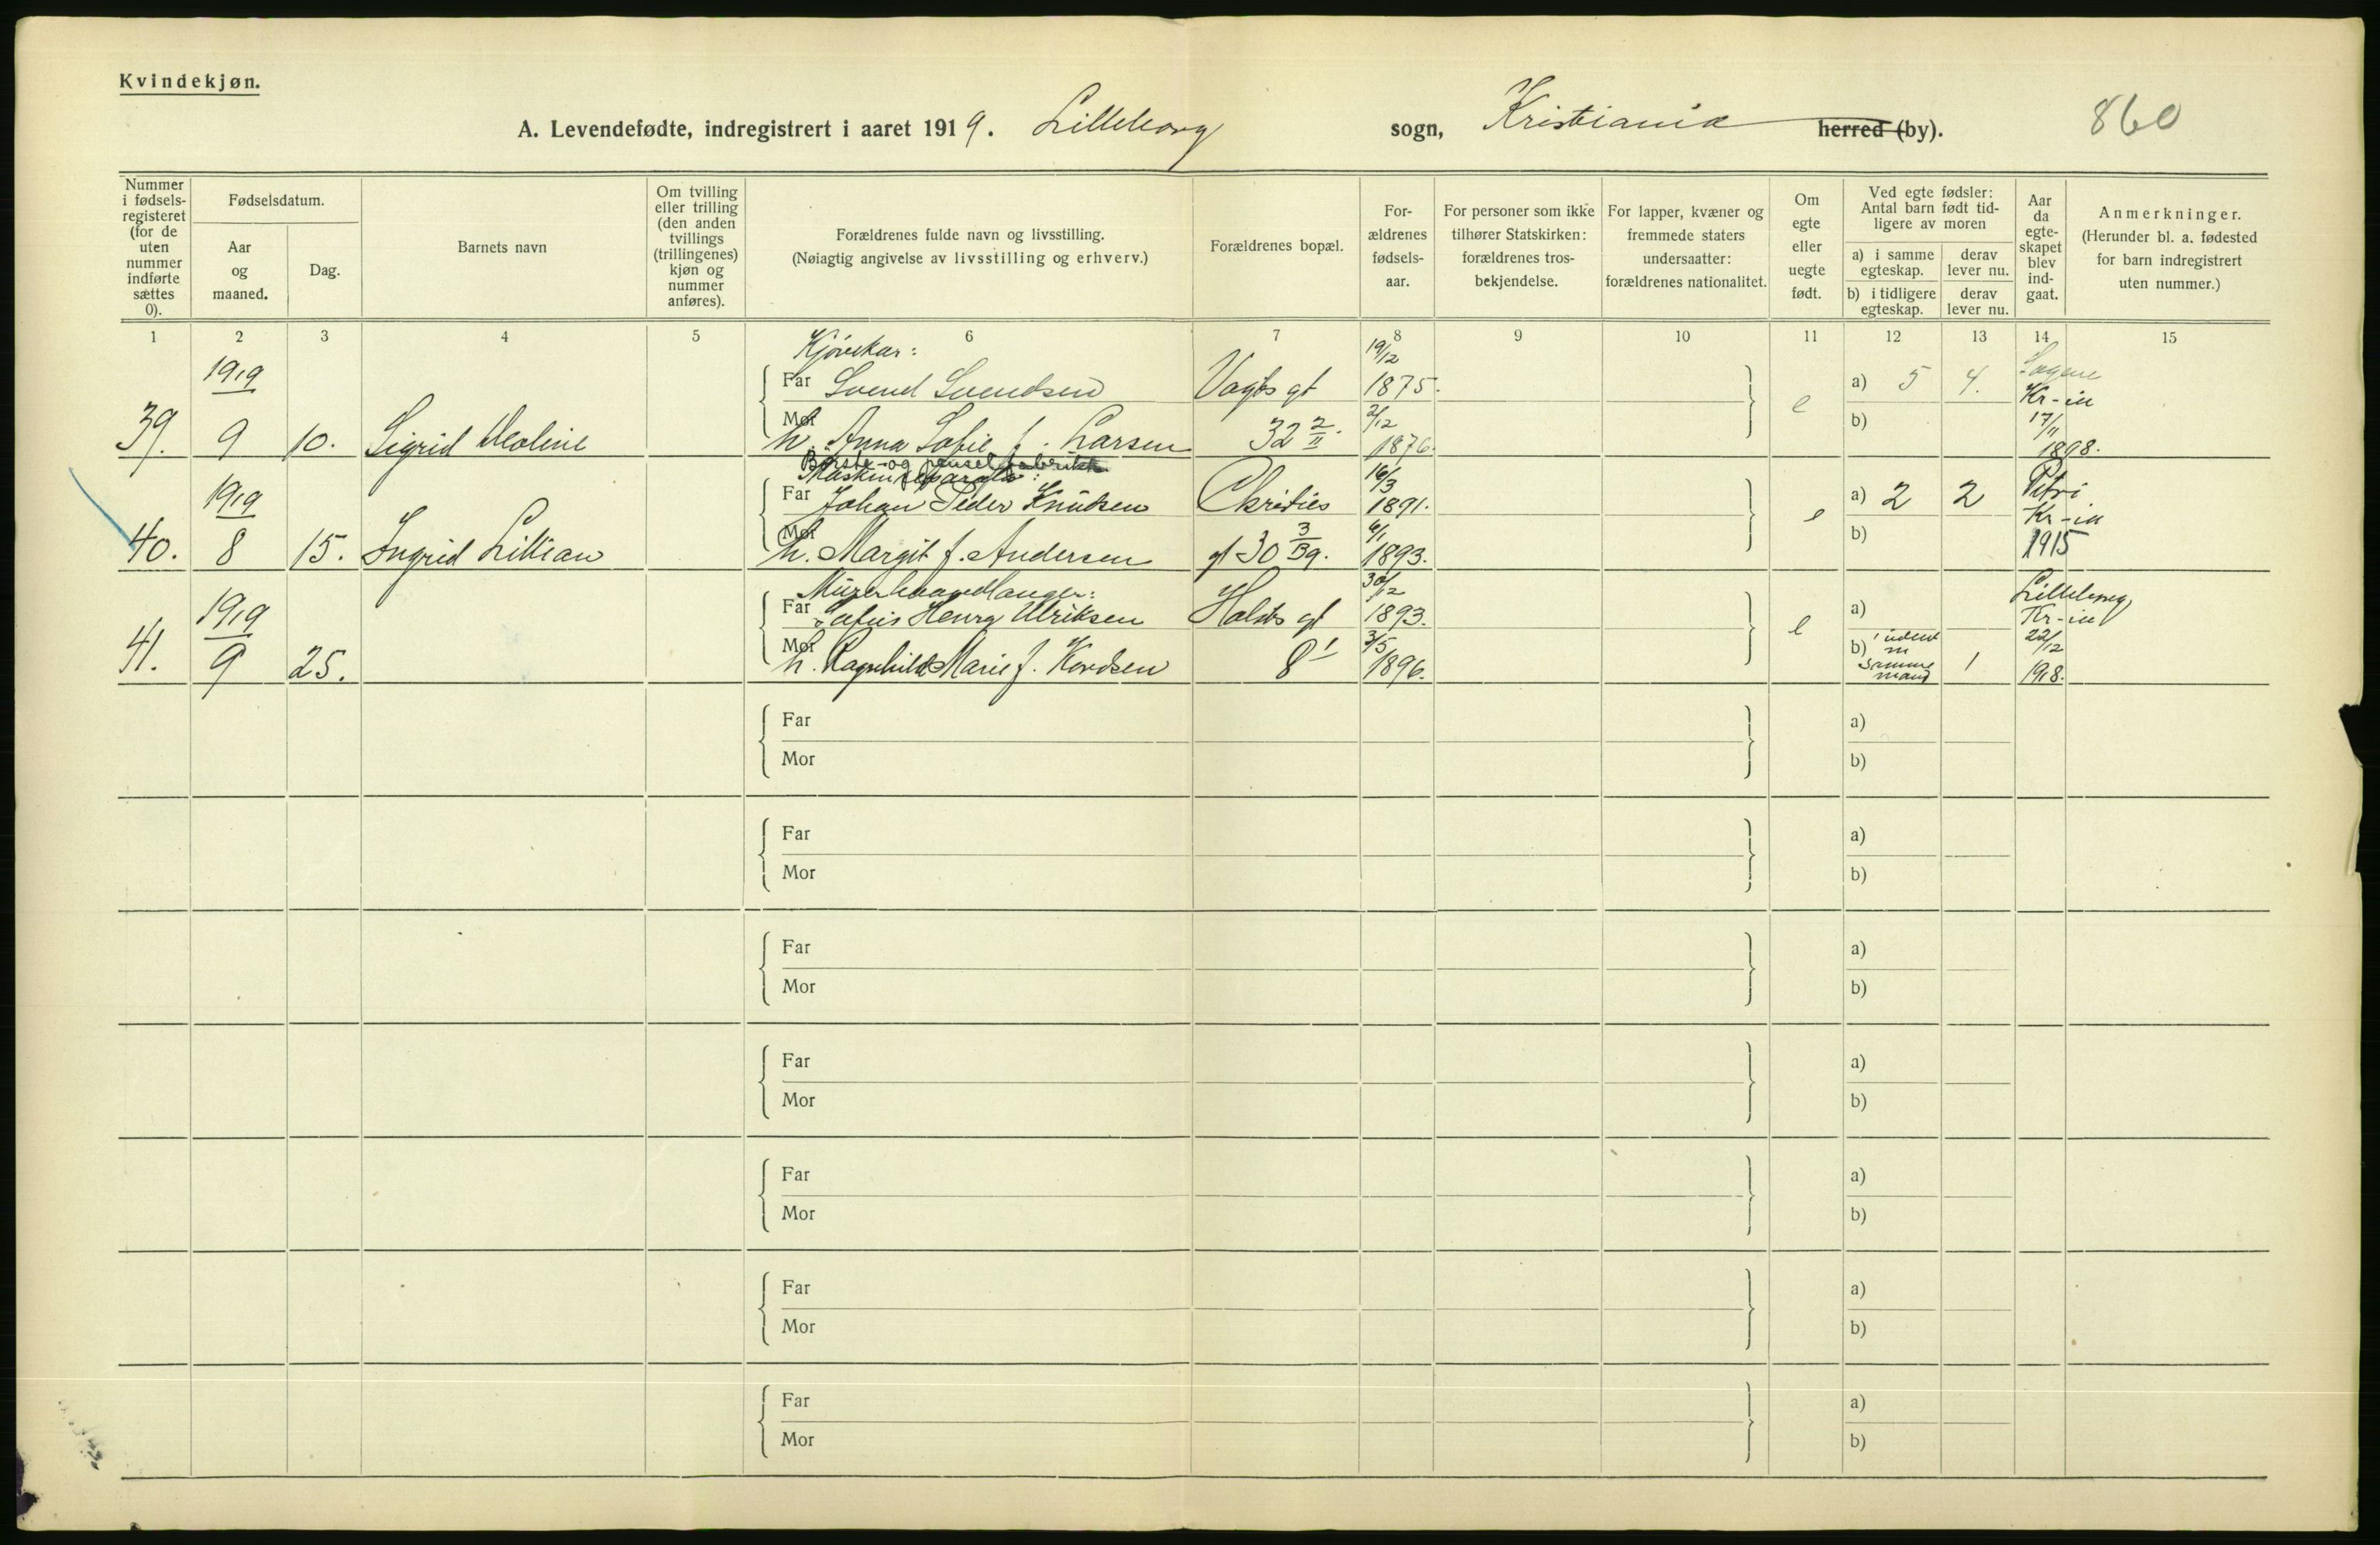 Kvindekjøn.
A. Levendefødte, indregistrert i aaret 1919. Lilleborg sogn, Kristiania herred (by). 860
Nummer i fødsels-registeret (for de uten nummer indførte sættes 0).
Fødselsdatum.
Aar og maaned.
Dag.
Barnets navn
Om tvilling eller trilling (den anden tvillings (trillingenes) kjøn og nummer anføres).
Forældrenes fulde navn og livsstilling.
(Nøiagtig angivelse av livsstilling og erhverv.)
Forældrenes bopæl.
For-ældrenes fødsels-aar.
For personer som ikke tilhører Statskirken: forældrenes tros-bekjendelse.
For lapper, kvæner og fremmede staters undersaatter: forældrenes nationalitet.
Om egte eller uegte født.
Ved egte fødsler: Antal barn født tid-ligere av moren
a) i samme egteskap.
derav lever nu.
b) i tidligere egteskap.
derav lever nu.
Aar da egte-skapet blev ind-gaat.
Anmerkninger.
(Herunder bl. a. fødested for barn indregistrert uten nummer.)
1 2 3 4 5 6 7 8 9 10 11 12 13 14 15
Kjørekar: 19/12
1919 Far Svend Svendsen Vogts gt 1875. a) 5 4. Sagene Kr-ia
39. 9 10. Sigrid Mor h. Anna Sofie f. Larsen 32 2/II. 2/12 1876. e b) 17/11 1898.
Børste- og penselfabrikk
16/3
1919 Far Johan Peder Knudsen Christies 1891. a) 2 2 Petri Kr-ia
40. 8 15. Ingrid Lillian Mor h. Margit f. Andersen gt 30 3/39. 6/1 1893. e b) 1915
Murerhaandlanger: 30/12
1919 Far Henry Ulriksen Holsts gt 1893. a) Lilleborg Kr-ia
41. 9 25. Mor h. Ragnhild Marie f. 8 I 3/5 1896. e b) 1 udent m samme mand 1 22/12 1918.
Far a)
Mor b)
Far a)
Mor b)
Far a)
Mor b)
Far a)
Mor b)
Far a)
Mor b)
Far a)
Mor b)
Far a)
Mor b)